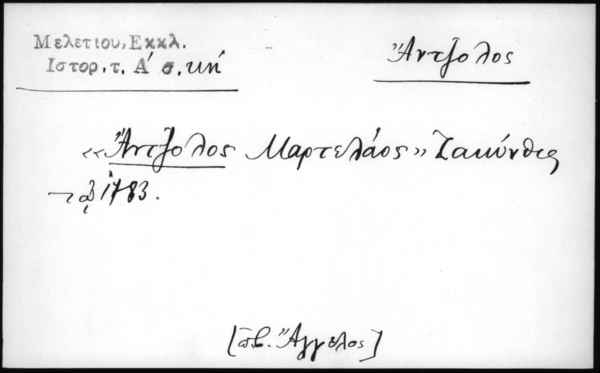 Μελετίου, Εκκλ.
Ιστορ. τ. Α´ σ. κη´
Ἄντζολος
«Ἄντζολος Μαρτελάος» Ζακύνθιος
τῷ 1783.
[πβ. Ἄγγελος]